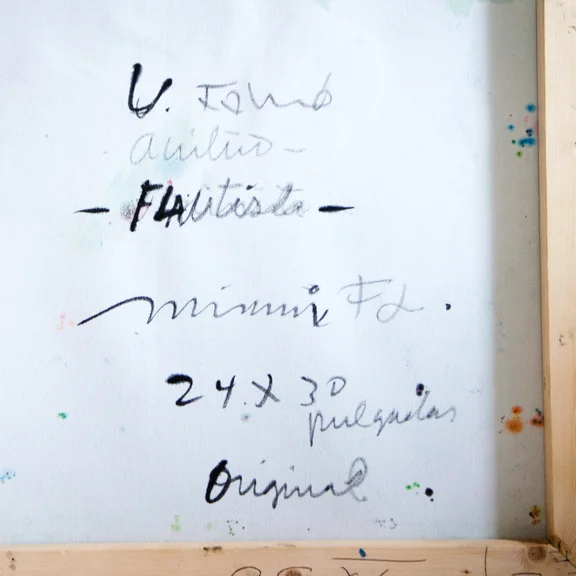 V. Tomé
acrílico -
- FLAUtista -
miami FL.
24 X 30
pulgadas
Original.